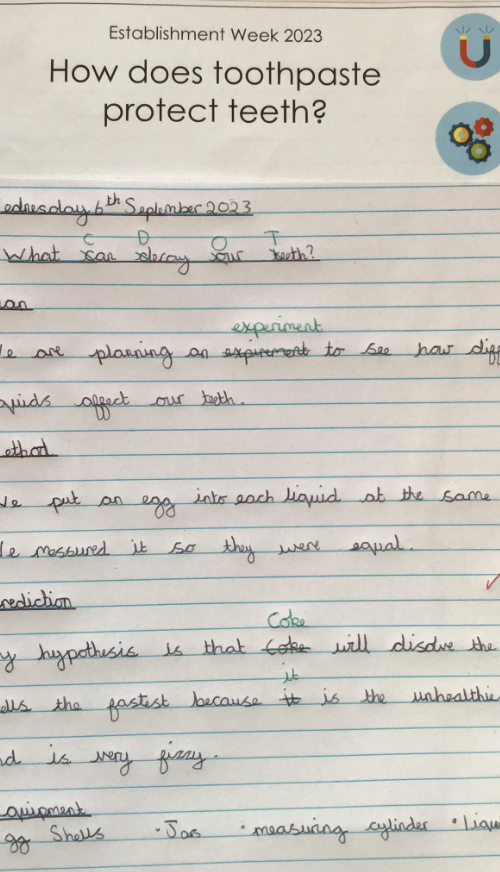 Establishment Week 2023
How does toothpaste
protect teeth?
ednesday 6th September 2023
C D O T
What can decay our teeth?
an
experiment
e are planning an expirement to see how diff
quids affect our teeth.
ethod
e put an egg into each liquid at the same
e messured it so they were equal.
rediction
Coke
y hypothesis is that Coke will disolve the
it
ells the fastest because it is the unhealthie
nd is very fizzy.
quipment
gg Shells · Jars · measuring cylinder · liqu